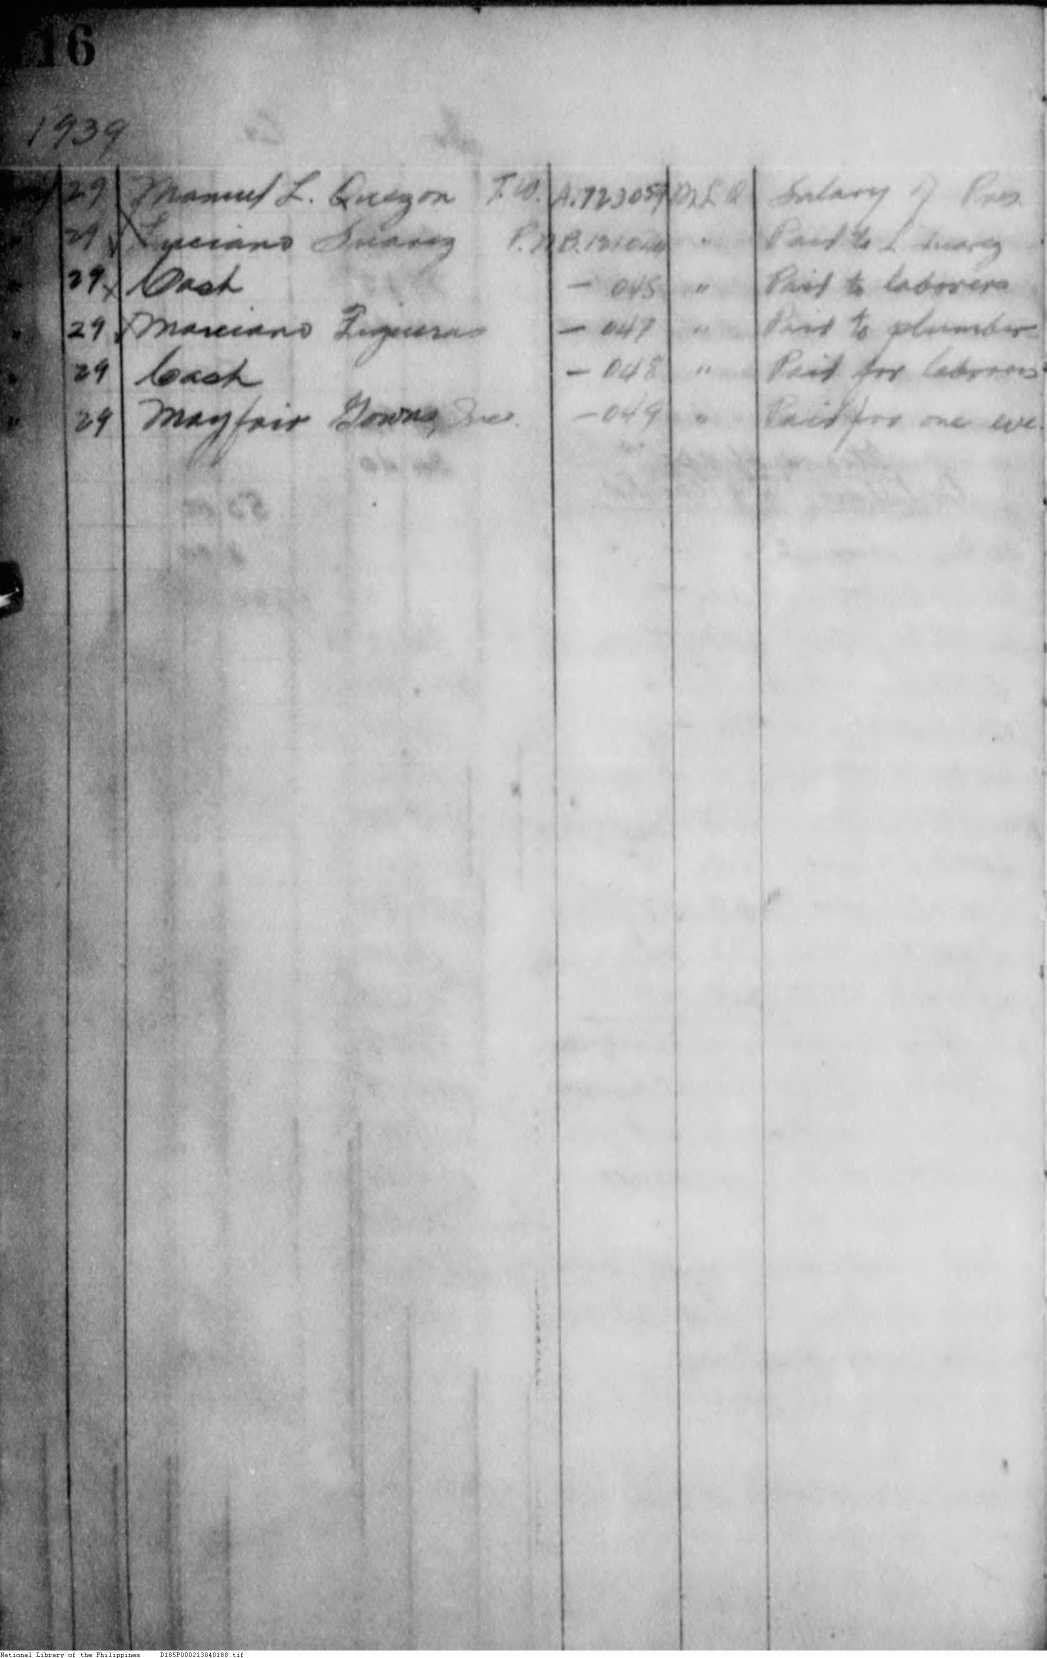 16
1939
29 Manuel L. Quezon T.W. A.723059 M L Q Salary of Pres
" 29 x Luciano Suarez P.N.B. " Paid to L Suarez
" 29 x Cash — 045 " Paid to laborers
" 29 x Marciano Figueras — 047 " Paid to plumber
" 29 Cash — 048 " Paid for laborers
" 29 Mayfair Gowns, Inc. — 049 " Paid for one eve.
National Library of the Philippines D185P000213040188.tif